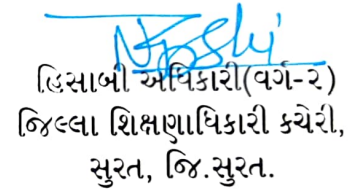 હિસાબી અધિકારી(વર્ગ-૨)
જિલ્લા શિક્ષણાધિકારી કચેરી,
સુરત, જિ.સુરત.